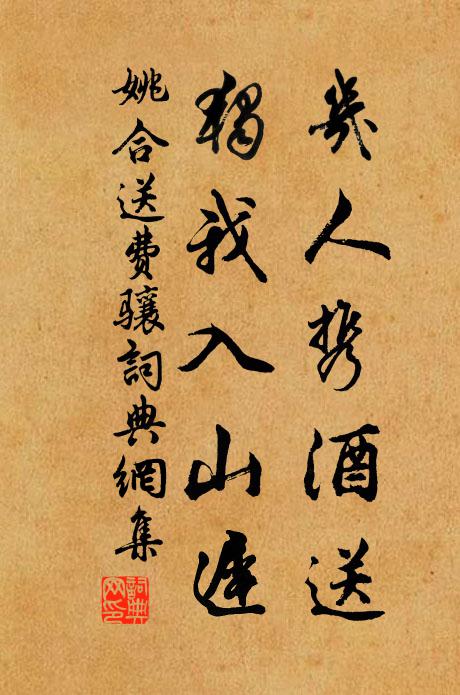 幾人携酒送
獨我入山遲
姚合送費驤詞典網集
詞典网印